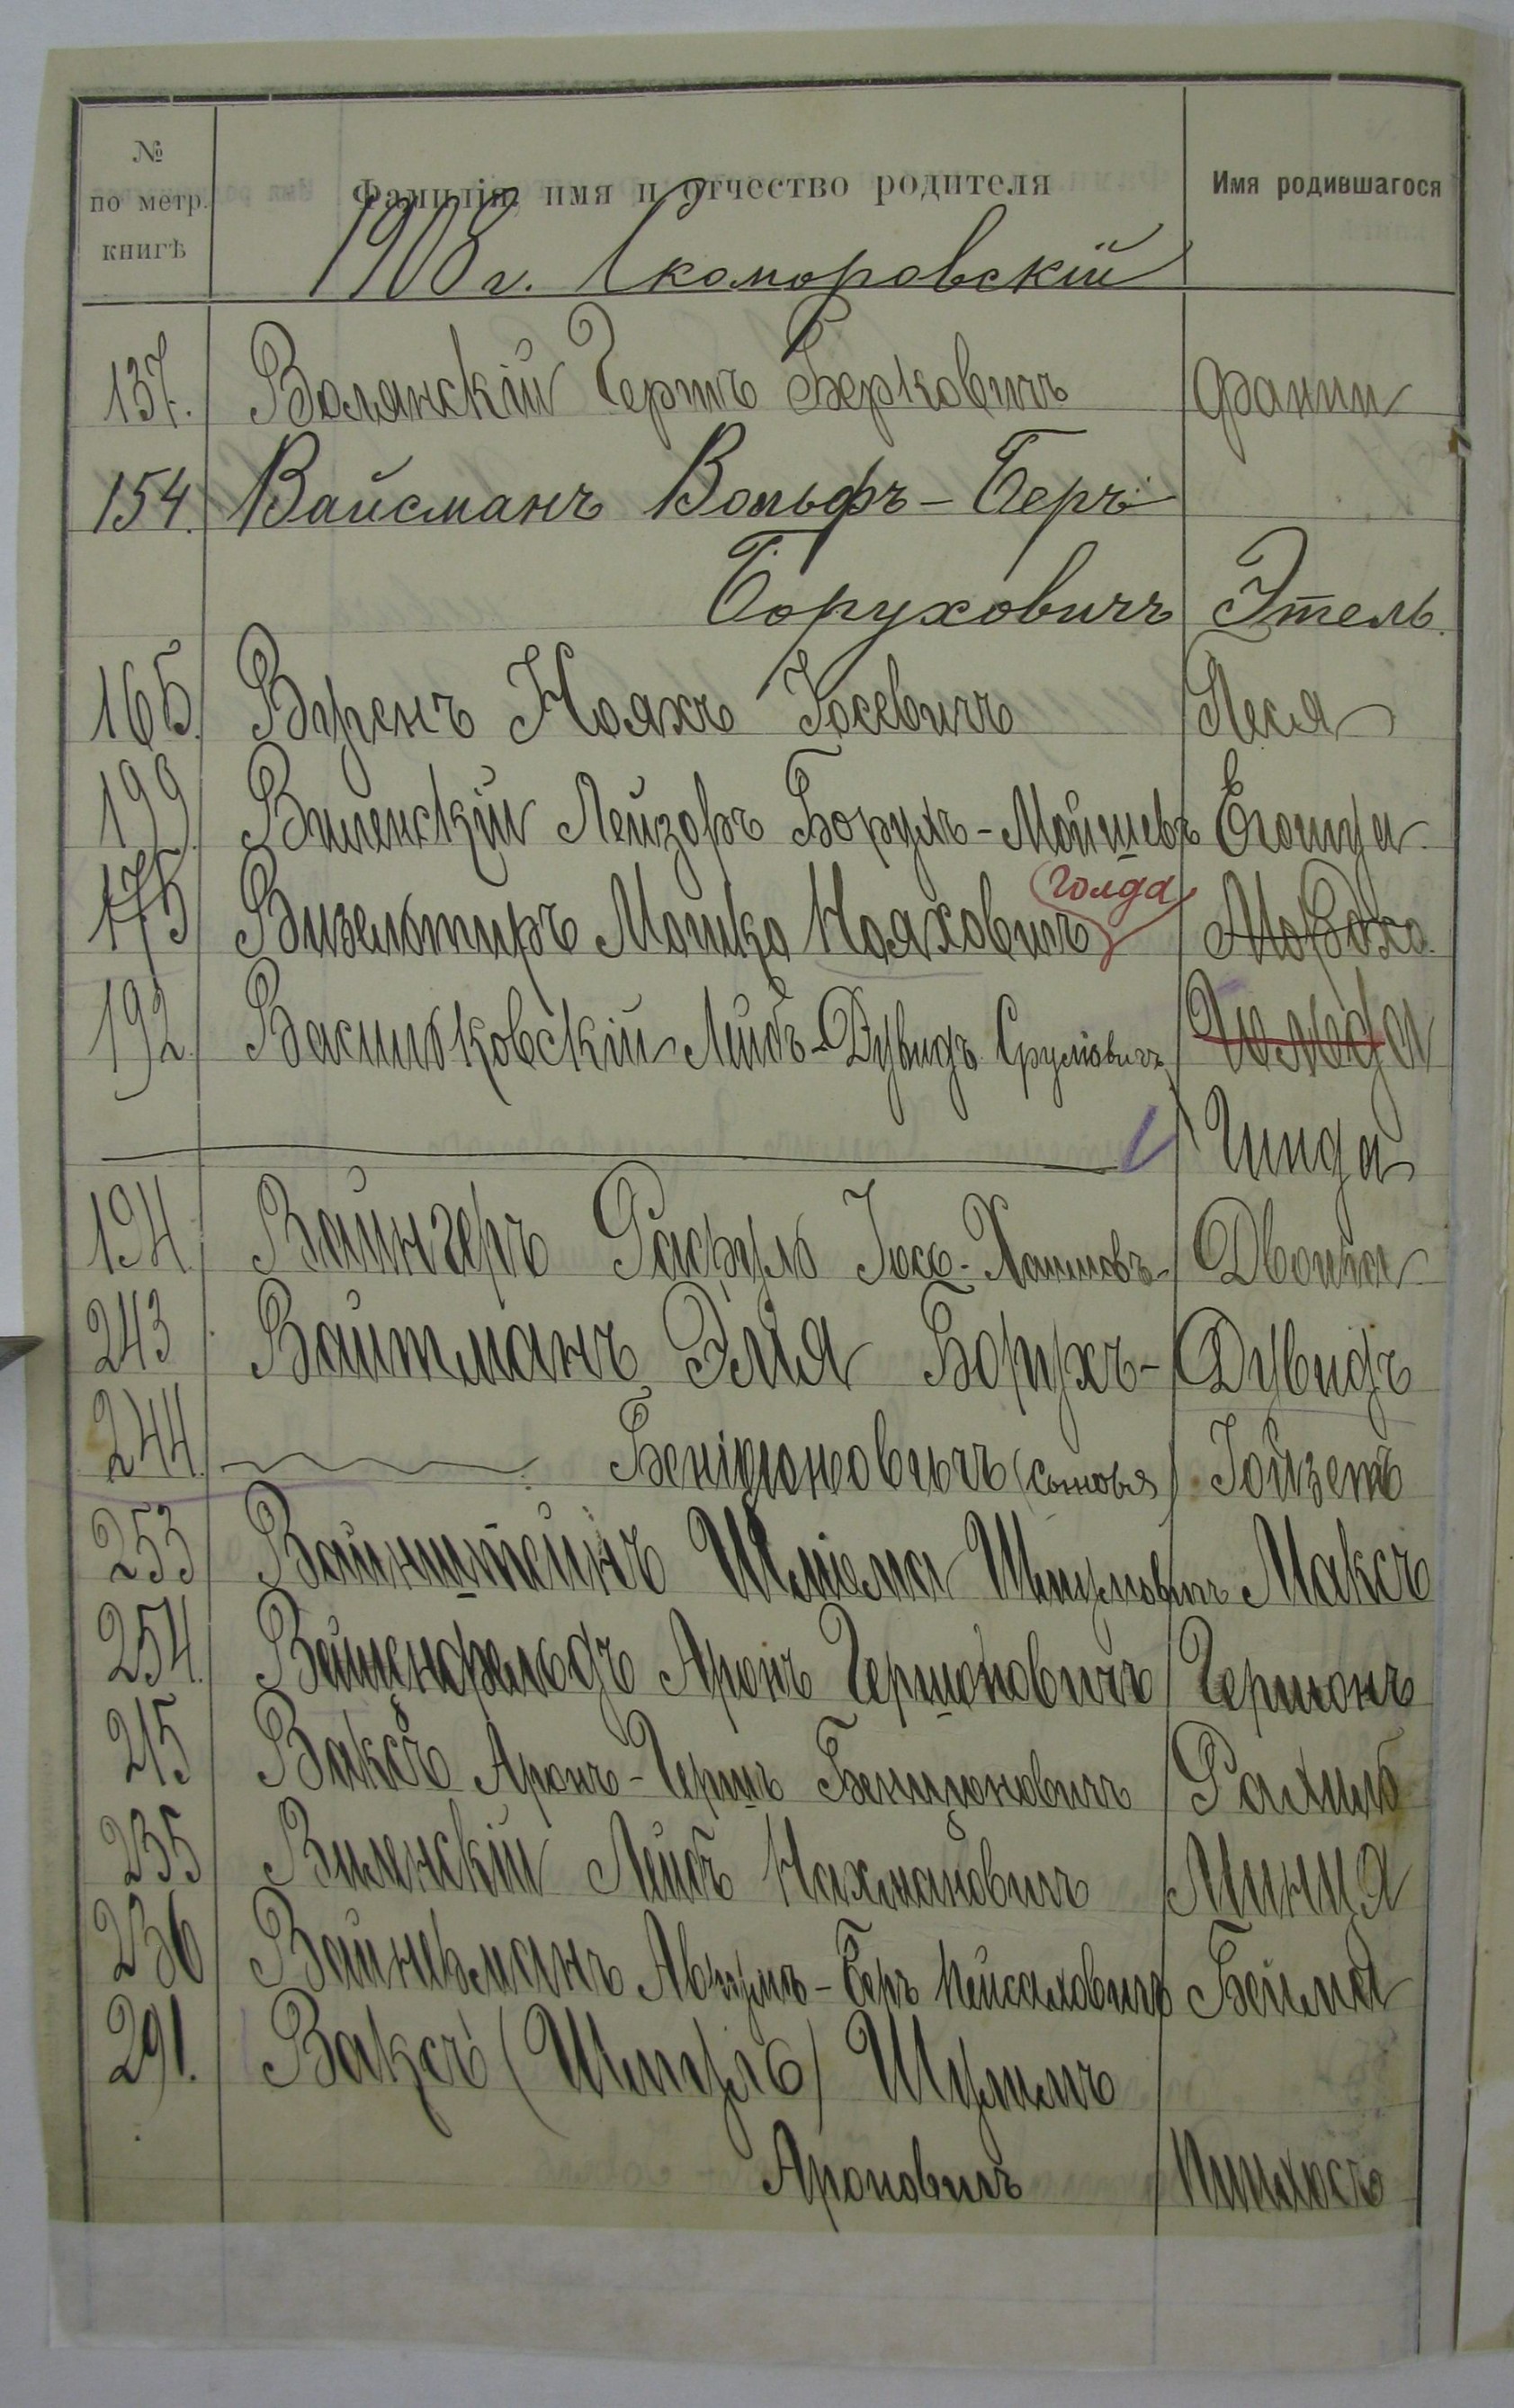 № по метр. книгѣ Фамилія, имя и отчество родителя Имя родившагося
1908 г. Скоморовскій
137. Волянскій Гершъ Берковичъ Фанни
154. Вайсманъ Вольфъ-Беръ
Боруховичъ Этель.
165. Вренъ Нояхъ Іосевичъ Песя
199. Виленскій Лейзоръ Борухъ-Мойшевъ
175 Визельтиръ Мошко Нояховичъ голда
192. Васильковскій Лейбъ-Дувидъ Срулiовичъ
Гинда
194. Вайнгеръ Рафуль Іосѣ-Хаимовъ- Двойра
243 Вайтманъ Эля Борухъ- Дувидъ
244. Бенiционовичъ (сыновья) Іойзепъ
253 Вайнштейнъ Шлiома Шмулевичъ Максъ
254. Вейценфельдъ Аронъ Гершоновичъ Гершонъ
215 Ваксъ Аронъ-Гершъ Бенционовичъ Рахиль
235 Виленскій Лейбъ Нахмановичъ Минця
236 Авримъ-Беръ Пейсаховичъ Бейла
291. Ваксъ (Шмуль)
Ароновичъ Пинхосъ